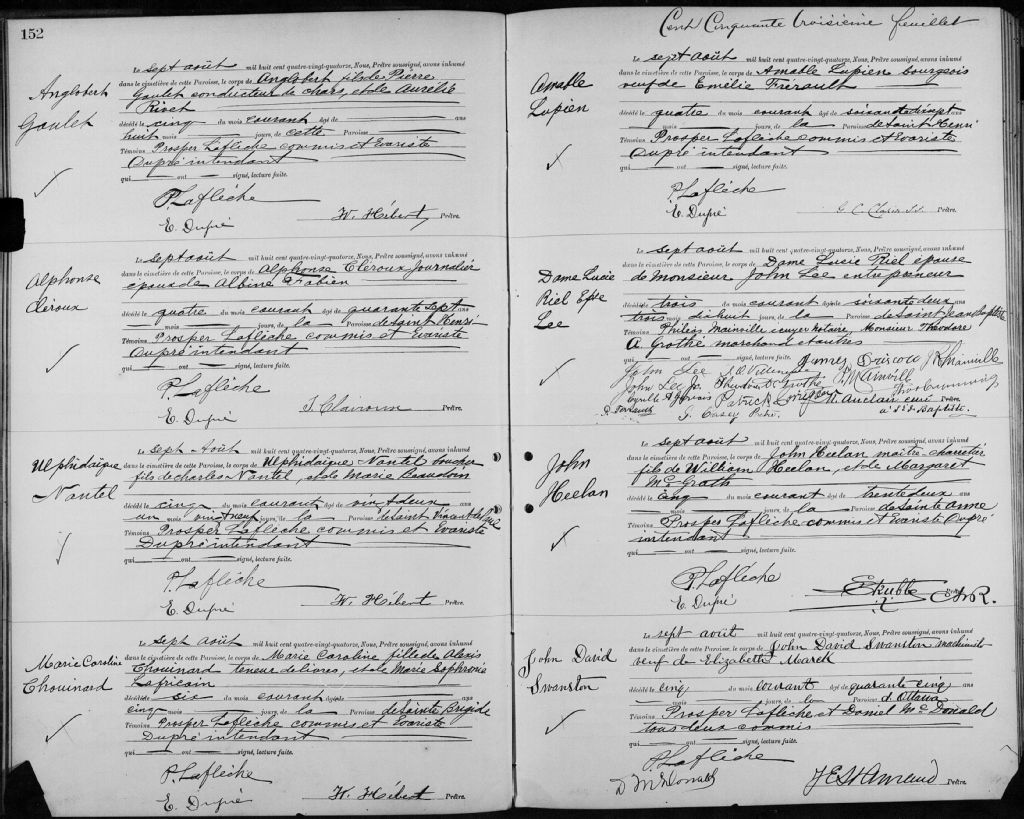 152
Anglobert
Goulet
Le sept août mil huit cent quatre-vingt-quatorze, Nous, Prêtre soussigné, avons inhumé
dans le cimetière de cette Paroisse, le corps de Anglobert fils de Pierre
Goulet conducteur de chars, et de Aurélie
Rivet
décédé le cinq du mois courant âgé de ans
huit mois jours, de cette Paroisse
Témoins Prosper Laflèche commis et Evariste
Dupré intendant
qui ont signé, lecture faite.
P. Laflèche
E. Dupré
W. Hébert, Prêtre.
Alphonse
Cléroux
Le sept août mil huit cent quatre-vingt-quatorze, Nous, Prêtre soussigné, avons inhumé
dans le cimetière de cette Paroisse, le corps de Alphonse Cléroux Journalier
époux de Albine Fabien
décédé le quatre du mois courant âgé de quarante sept ans
mois jours, de la Paroisse de Saint Henri
Témoins Prosper Laflèche commis et Evariste
Dupré intendant
qui ont signé, lecture faite.
P. Laflèche
E. Dupré
Prêtre.
Ulphidaïque
Nantel
Le sept Août mil huit cent quatre-vingt-quatorze, Nous, Prêtre soussigné, avons inhumé
dans le cimetière de cette Paroisse, le corps de Ulphidaïque Nantel boucher
fils de charles Nantel, et de Marie Beaudoin
décédé le cinq du mois courant âgé de vingt deux ans
un mois vingt neuf jours, de la Paroisse de Saint Vincent de Paul
Témoins Prosper Laflèche commis et Evariste
Dupré intendant
qui ont signé, lecture faite.
P. Laflèche
E. Dupré
W. Hébert Prêtre.
Marie Caroline
Chouinard
Le sept Août mil huit cent quatre-vingt-quatorze, Nous, Prêtre soussigné, avons inhumé
dans le cimetière de cette Paroisse, le corps de Marie Caroline fille de Alexis
Chouinard teneur de livres, et de Marie Sophronie
Lafricain
décédée le six du mois courant âgée de ans
cinq mois jours, de la Paroisse de Sainte Brigide
Témoins Prosper Laflèche commis et Evariste
Dupré intendant
qui ont signé, lecture faite.
P. Laflèche
E. Dupré
W. Hébert Prêtre.
Cent Cinquante troisième feuillet
Amable
Lupien
Le sept août mil huit cent quatre-vingt-quatorze, Nous, Prêtre soussigné, avons inhumé
dans le cimetière de cette Paroisse, le corps de Amable Lupien bourgeois
veuf de Emélie Frérault
décédé le quatre du mois courant âgé de soixante dix sept ans
mois jours, de la Paroisse de Saint Henri
Témoins Prosper Laflèche commis et Evariste
Dupré intendant
qui ont signé, lecture faite.
P. Laflèche
E. Dupré
Prêtre.
Dame Lucie
Riel Epse
Lee
Le sept août mil huit cent quatre-vingt-quatorze, Nous, Prêtre soussigné, avons inhumé
dans le cimetière de cette Paroisse, le corps de Dame Lucie Riel épouse
de Monsieur John Lee entrepreneur
décédé le trois du mois courant âgé de soixante deux ans
trois mois dix huit jours, de la Paroisse de Saint Jean Baptiste
Témoins Philéas Mainville écuyer Notaire, Monsieur Théodore
A Grothé marchand et autres
qui ont signé, lecture faite.
John Lee James Driscoll
John Lee Jr. Theodore A Grothé P. Mainville
Patrick
G. Casey Ptre. M. Auclair curé
à St J. Baptiste.
John
Heelan
Le sept août mil huit cent quatre-vingt-quatorze, Nous, Prêtre soussigné, avons inhumé
dans le cimetière de cette Paroisse, le corps de John Heelan, maître charretier
fils de William Heelan, et de Margaret
Mc Grath
décédé le cinq du mois courant âgé de trente deux ans
mois jours, de la Paroisse de Sainte Anne
Témoins Prosper Laflèche commis et Evariste Dupré
intendant
qui ont signé, lecture faite.
P. Laflèche
E. Dupré
John David
Swanston
Le sept août mil huit cent quatre-vingt-quatorze, Nous, Prêtre soussigné, avons inhumé
dans le cimetière de cette Paroisse, le corps de John David Swanston machiniste
veuf de Elizabeth Marek
décédé le cinq du mois courant âgé de quarante cinq ans
mois jours, de la Paroisse d'Ottawa
Témoins Prosper Laflèche et Daniel Mc Donald
tous deux commis
qui ont signé, lecture faite.
P. Laflèche
D McDonald
Prêtre.